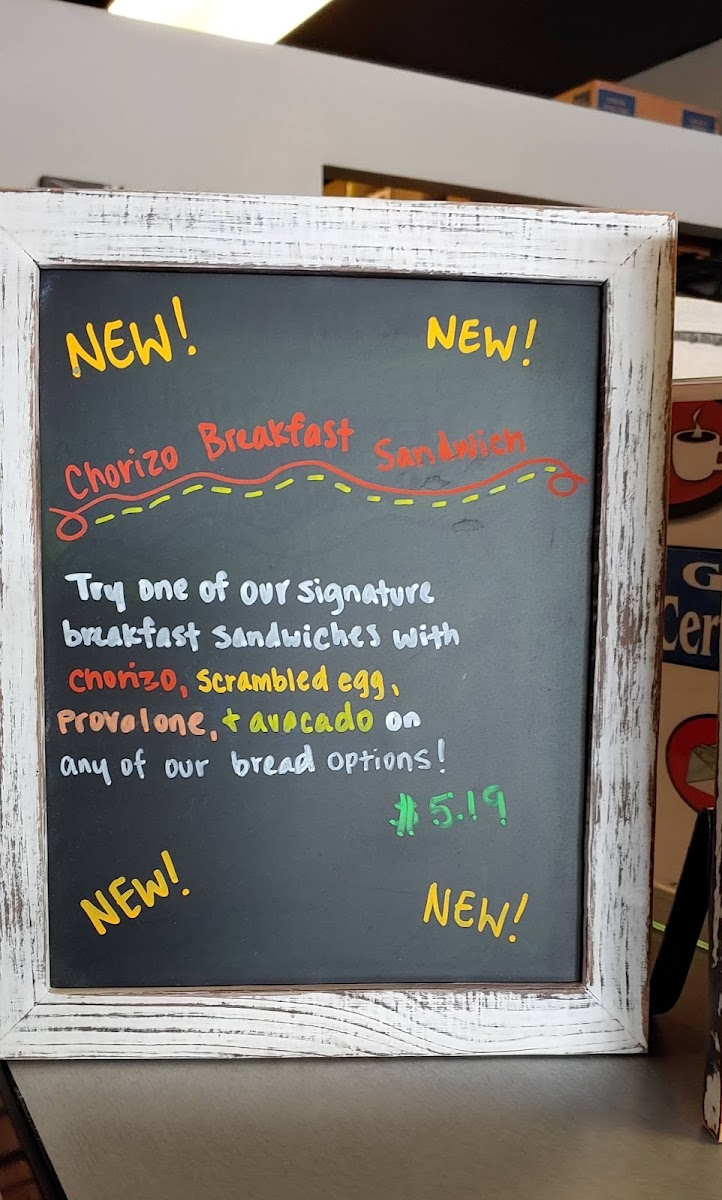 NEW! NEW!
Chorizo Breakfast Sandwich
Try one of our signature
breakfast sandwiches with
chorizo, scrambled egg,
Provolone, + avocado on
any of our bread options!
$5.19
NEW! NEW!
G
Cer